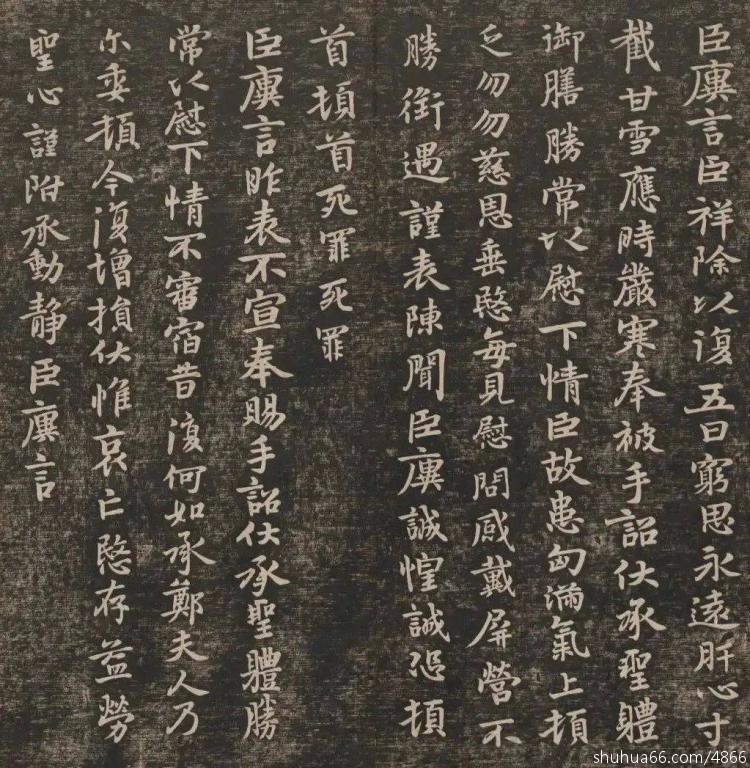 臣廙言臣祥除以復五日窮思永遠肝心寸
截甘雪應時嚴寒奉被手詔伏承聖體
御膳勝常以慰下情臣故患匈滿氣上頓
乏勿勿慈恩垂愍每見慰問感戴屏營不
勝銜遇謹表陳聞臣廙誠惶誠恐頓
首頓首死罪死罪
臣廙言昨表不宣奉賜手詔伏承聖體勝
常以慰下情不審宿昔復何如承鄭夫人乃
尓委頓今復增損伏惟哀亡愍存益勞
聖心謹附承動靜臣廙言
shuhua66.com/4866